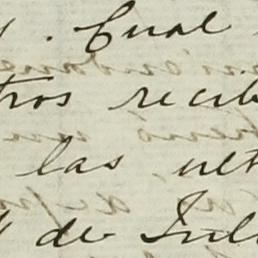 . Cual
tros recib
las
de Jul